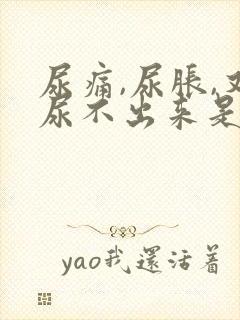 尿痛,尿脹,
尿不出来是
yao我還活着